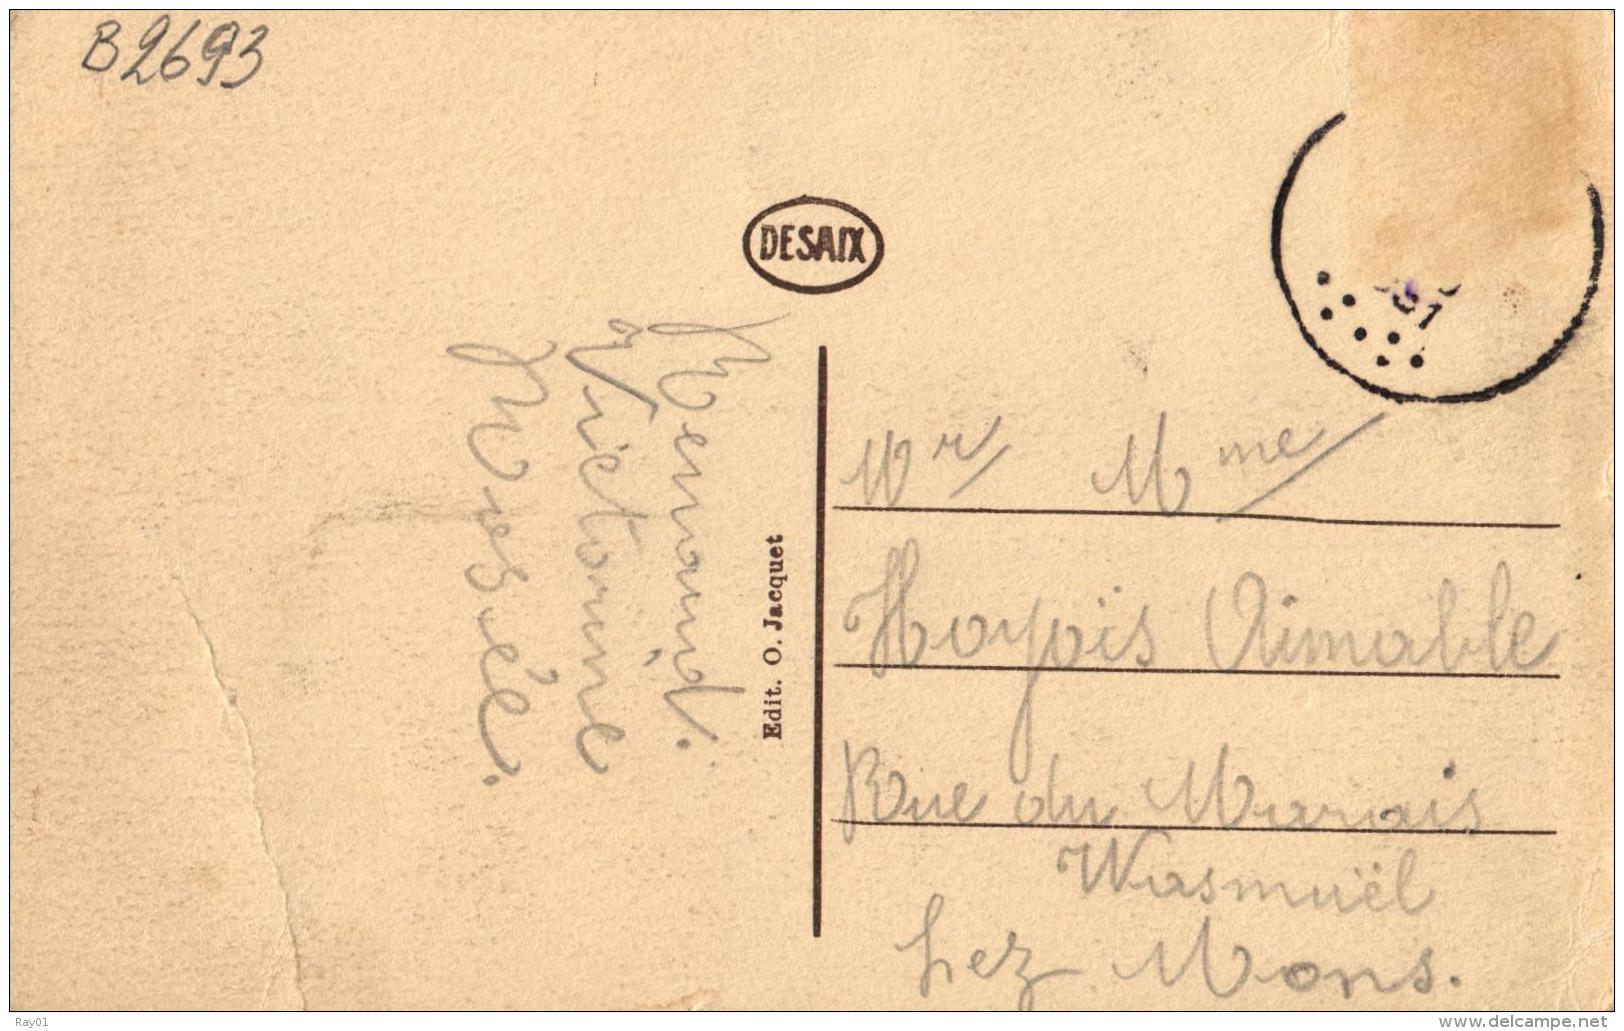 B2693
DESAIX
51
Victorine
Edit. O. Jacquet
Mr Mme
Hoyoïs Aimable
Rue du Marais
Wasmuël
Lez Mons.
Ray01
www.delcampe.net